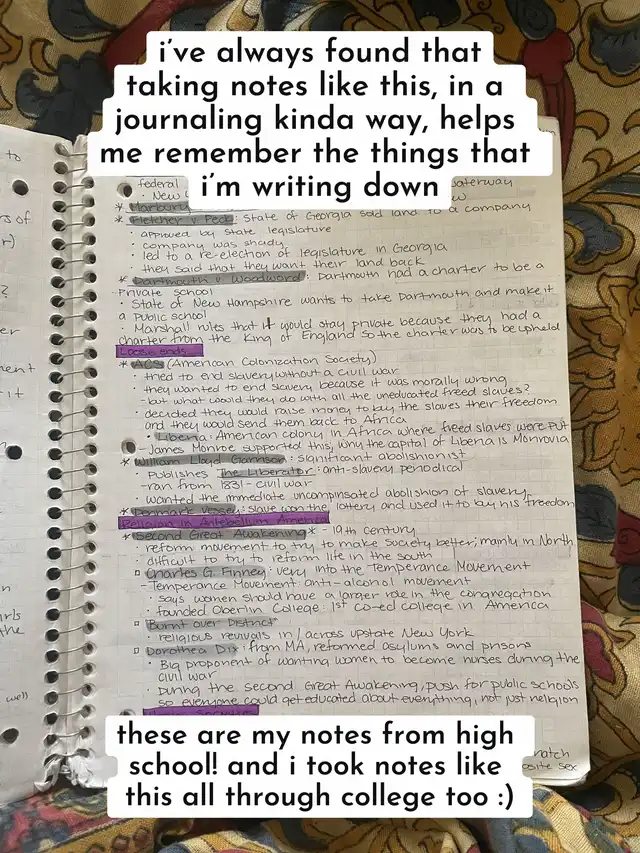 i've always found that
taking notes like this, in a
journaling kinda way, helps
me remember the things that
i'm writing down
federal
waterway
• New
* Marbury
* Fletcher v. Peck: State of Georgia sold land to a company
approved by state legislature
• company was shady
• led to a re-election of legislature in Georgia
they said that they want their land back
* Dartmouth v Woodword: Dartmouth had a charter to be a
private school
• State of New Hampshire wants to take Dartmouth and make it
a public school
• Marshall rules that it would stay private because they had a
charter from the King of England so the charter was to be upheld
Loose ends...
* ACS (American Colonization Society)
• tried to end slavery without a civil war
• they wanted to end slavery because it was morally wrong
- but what would they do with all the uneducated freed slaves?
• decided they would raise money to buy the slaves their freedom
and they would send them back to Africa
• Liberia: American colony in Africa where freed slaves were put
- James Monroe supported this, why the capital of Liberia is Monrovia
* William Lloyd Garrison: significant abolishionist
• Publishes The Liberator: anti-slavery periodical
- ran from 1831 - civil war
• wanted the immediate uncompinsated abolishion of slavery
* Denmark Vessey: slave won the lottery and used it to buy his freedom
Religion in Antebellum America
* Second Great Awakening * - 19th century
• reform movement to try to make society better; mainly in North
• difficult to try to reform life in the south
□ Charles G. Finney: very into the Temperance Movement
- Temperance Movement: anti-alcohol movement
• says women should have a larger role in the congregation
• founded Oberlin College: 1st co-ed college in America
□ "Burnt over District"
• religious revivals in/across upstate New York
□ Dorothea Dix: from MA, reformed asylums and prisons
• Big proponent of wanting women to become nurses during the
civil war
• During the second Great Awakening, push for public schools
so everyone could get educated about everything, not just religion
these are my notes from high
school! and i took notes like
this all through college too :)
osite sex